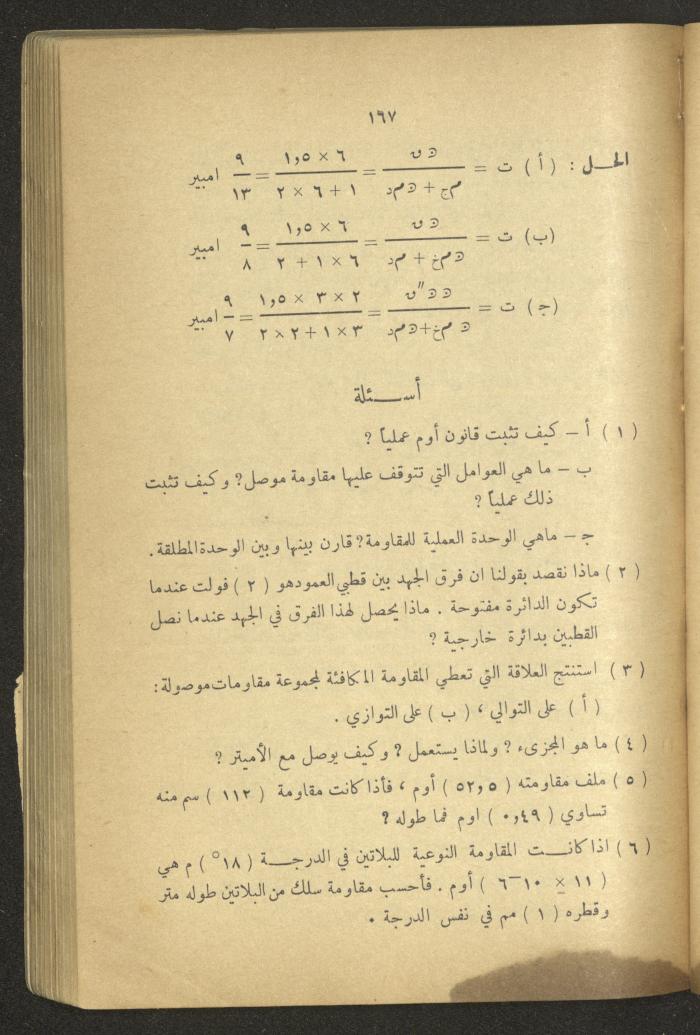 ١٦٧
الحـل : ( أ ) ت = ن ق / م ج + ن م د = ٦ × ١,٥ / ١ + ٦ × ٢ = ٩ / ١٣ امبير
(ب) ت = ن ق / ن م خ + م د = ٦ × ١,٥ / ٦ × ١ + ٢ = ٩ / ٨ امبير
(ج) ت = ن ن″ ق / ن م خ + ن م د = ٢ × ٣ × ١,٥ / ٣ × ١ + ٢ × ٢ = ٩ / ٧ امبير
أســـئلة
( ١ ) أ – كيف تثبت قانون أوم عملياً ؟
ب – ما هي العوامل التي تتوقف عليها مقاومة موصل؟ وكيف تثبت
ذلك عملياً ؟
ج – ماهي الوحدة العملية للمقاومة؟ قارن بينها وبين الوحدة المطلقة .
( ٢ ) ماذا نقصد بقولنا ان فرق الجهد بين قطبي العمود هو ( ٢ ) فولت عندما
تكون الدائرة مفتوحة . ماذا يحصل لهذا الفرق في الجهد عندما نصل
القطبين بدائرة خارجية ؟
( ٣ ) استنتج العلاقة التي تعطي المقاومة المكافئة لمجموعة مقاومات موصولة :
( أ ) على التوالي ، ( ب ) على التوازي .
( ٤ ) ما هو المجزىء ؟ ولماذا يستعمل ؟ وكيف يوصل مع الأميتر ؟
( ٥ ) ملف مقاومته ( ٥٢,٥ ) أوم ، فأذا كانت مقاومة ( ١١٢ ) سم منه
تساوي ( ٠,٤٩ ) اوم فما طوله ؟
( ٦ ) اذا كانــت المقاومة النوعية للبلاتين في الدرجــة ( ١٨° ) م هي
( ١١ × ١٠–٦ ) أوم . فأحسب مقاومة سلك من البلاتين طوله متر
وقطره ( ١ ) مم في نفس الدرجة .